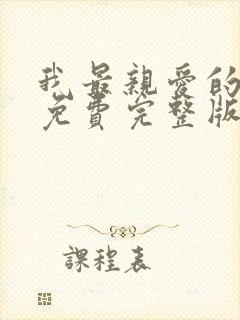 我最親愛的
免費完整版
課程表